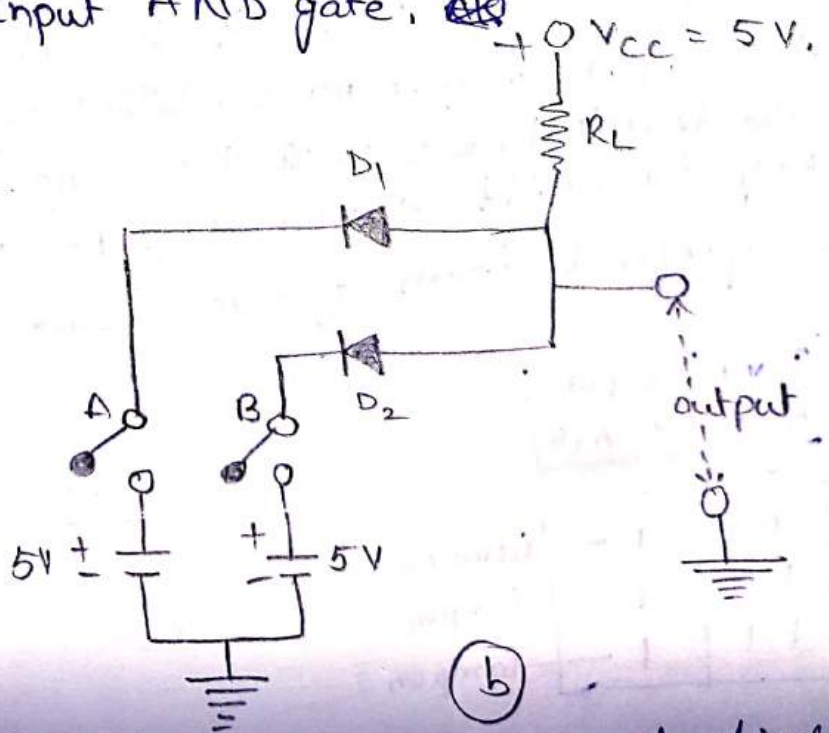 input AND gate.
+ VCC = 5 V.
RL
D1
A B D2
output
5V + - + - 5V
b